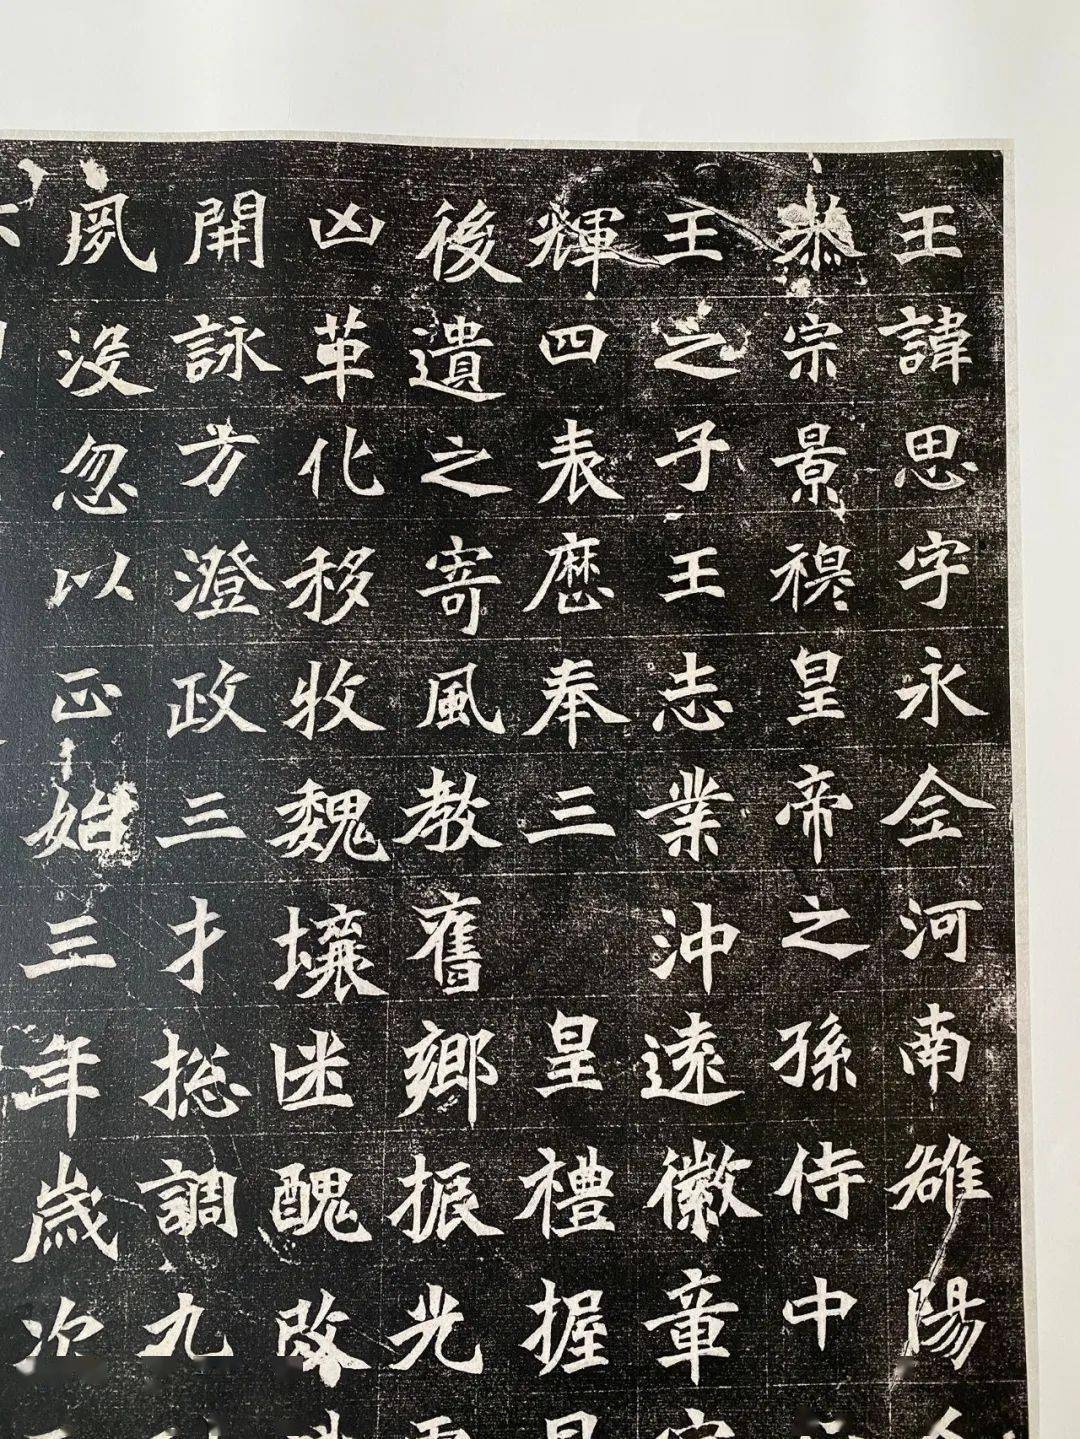 王諱思字永全河南雒陽
恭宗景穆皇帝之孫侍中
王之子王志業沖遠徽章
輝四表歷奉三皇禮握
後遺之寄風教舊鄉振光
凶革化移牧魏壤迷醜改
開詠方澄政三才揔調九
夙沒忽以正始三年歲次